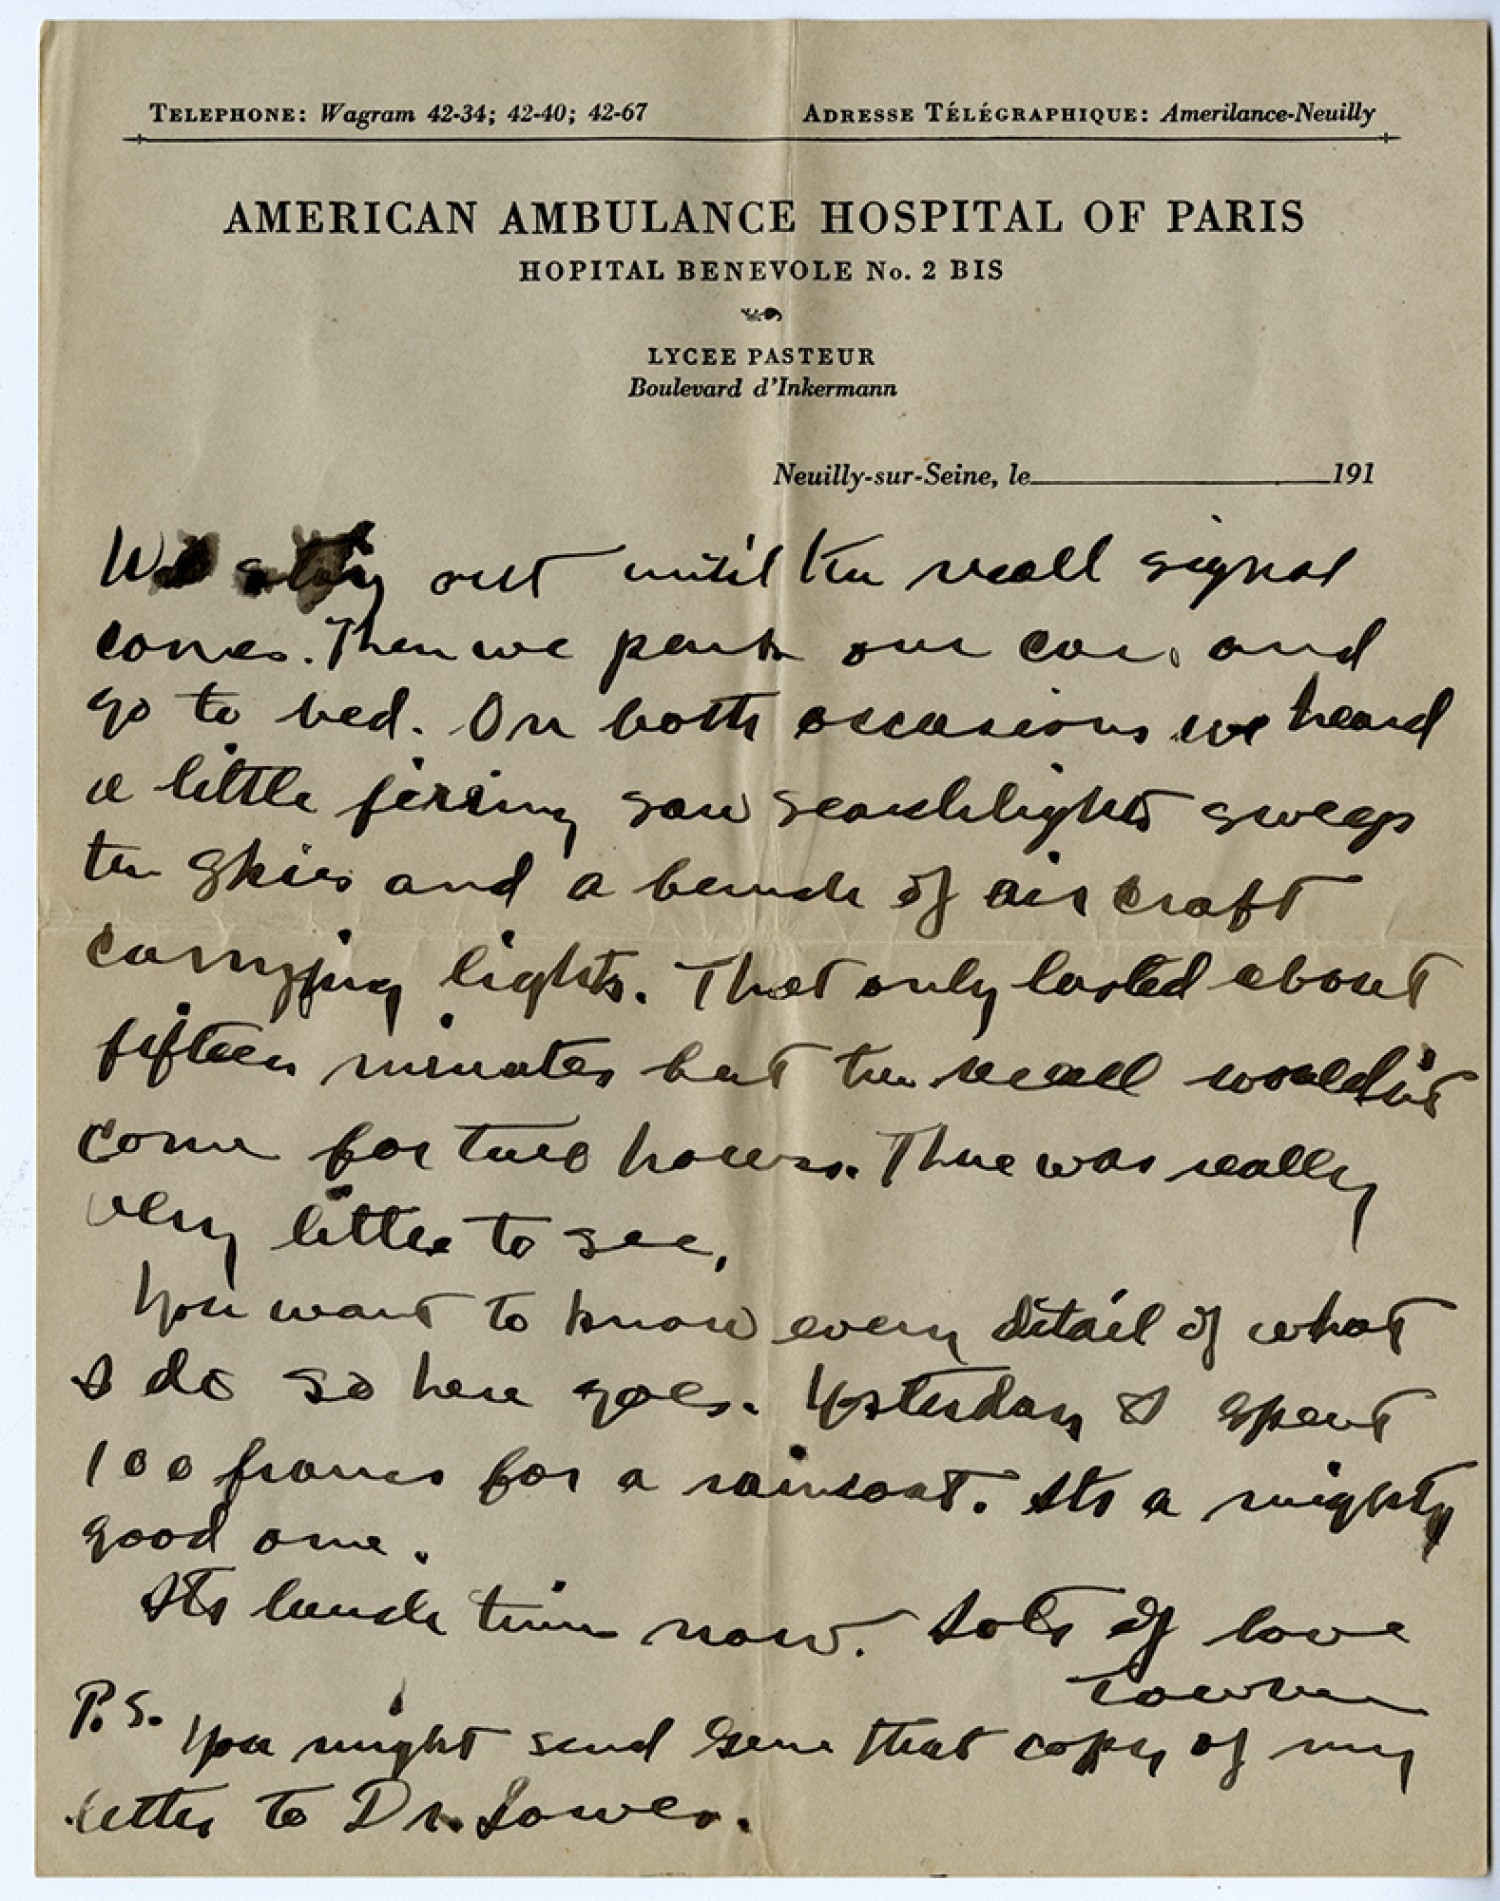 TELEPHONE: Wagram 42-34; 42-40; 42-67
ADRESSE TÉLÉGRAPHIQUE: Amerilance-Neuilly
AMERICAN AMBULANCE HOSPITAL OF PARIS
HOPITAL BENEVOLE No. 2 BIS
LYCEE PASTEUR
Boulevard d'Inkermann
Neuilly-sur-Seine, le 191
We stay out until the recall signal
comes. Then we park our car, and
go to bed. On both occasions we heard
a little firing saw searchlights sweep
the skies and a bunch of air craft
carrying lights. That only lasted about
fifteen minutes but the recall wouldn't
come for two hours. There was really
very little to see.
You want to know every detail of what
I do so here goes. Yesterday I spent
100 francs for a raincoat. Its a mighty
good one.
Its lunch time now. Lots of love
P.S. You might send Gene that copy of my
letter to Dr.